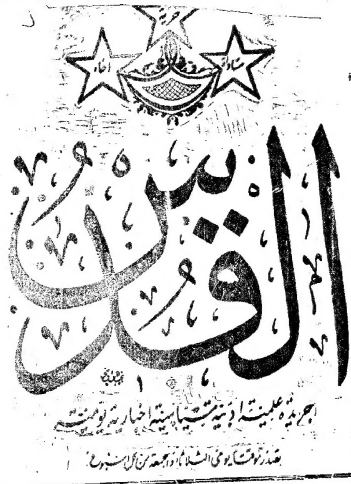 حرية
مساواة
اخاء
القدس
جريدة علمية ادبية سياسية اخبارية يومية
تصدر موقتا يومي الثلاثاء والجمعة من كل اسبوع